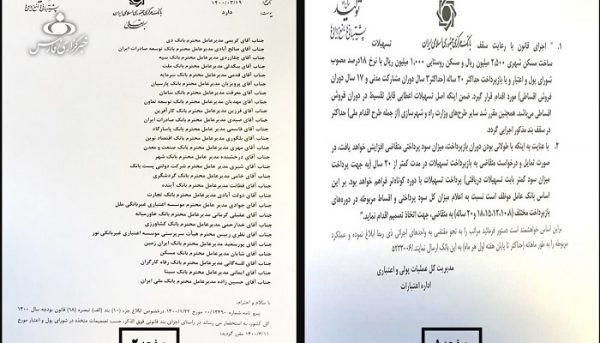 بسمه تعالی
تاریخ: ۱۴۰۰/۰۳/۱۹
پیوست: دارد
بانک مرکزی جمهوری اسلامی ایران
خبرگزاری فارس
جناب آقای کریمی مدیرعامل محترم بانک دی
جناب آقای صالح آبادی مدیرعامل محترم بانک توسعه صادرات ایران
جناب آقای چقازردی مدیرعامل محترم بانک سپه
جناب آقای بیگدلی مدیرعامل محترم بانک ملت
جناب آقای قدمی مدیرعامل محترم بانک سرمایه
جناب آقای پرویزیان مدیرعامل محترم بانک پارسیان
جناب آقای معرفت مدیرعامل محترم بانک سامان
جناب آقای مهدیان مدیرعامل محترم بانک توسعه تعاون
جناب آقای فرزین مدیرعامل محترم بانک کارآفرین
جناب آقای صیدی مدیرعامل محترم بانک صادرات ایران
جناب آقای قاسمی مدیرعامل محترم بانک پاسارگاد
جناب آقای ملکوری مدیرعامل محترم بانک اقتصاد نوین
جناب آقای مهری مدیرعامل محترم بانک صنعت و معدن
جناب آقای درخشنده مدیرعامل محترم بانک شهر
جناب آقای شیری مدیرعامل محترم شرکت دولتی پست بانک
جناب آقای اقدام مدیرعامل محترم بانک گردشگری
جناب آقای فطانت مدیرعامل محترم بانک آینده
جناب آقای دولت آبادی مدیرعامل محترم بانک تجارت
جناب آقای جوادی مدیرعامل محترم موسسه اعتباری غیربانکی ملل
جناب آقای عقیلی کرمانی مدیرعامل محترم بانک خاورمیانه
جناب آقای خدارحمی مدیرعامل محترم بانک کشاورزی
جناب آقای نظری رییس محترم هیأت سرپرستی موسسه اعتباری غیربانکی نور
جناب آقای پورسعید مدیرعامل محترم بانک ایران زمین
جناب آقای شایان مدیرعامل محترم بانک مسکن
جناب آقای لله گانی مدیرعامل محترم بانک رفاه کارگران
جناب آقای ایمانی مدیرعامل محترم بانک سینا
جناب آقای حسین زاده مدیرعامل محترم بانک ملی ایران
با سلام و احترام؛
پیرو نامه شماره مورخ ۱۴۰۰/۱/۲۲ درخصوص ابلاغ جزء (۱۰) بند (الف) تبصره (۱۸) قانون بودجه سال ۱۴۰۰
کل کشور، به استحضار می رساند در راستای اجرای بند قانونی فوق الذکر، حسب تصمیمات متخذه در شورای پول و اعتبار مورخ
۱۴۰۰/۳/۱۱ مقرر گردید:
صفحه ۲
۱. اجرای قانون با رعایت سقف تسهیلات
ساخت مسکن شهری ۲٬۵۰۰ میلیون ریال و مسکن روستایی ۱٬۰۰۰ میلیون ریال با نرخ ۱۸درصد مصوب
شورای پول و اعتبار و با بازپرداخت حداکثر ۲۰ ساله (حداکثر۳ سال دوران مشارکت مدنی و ۱۷ سال دوران
فروش اقساطی) مورد اقدام قرار گیرد. ضمن اینکه اصل تسهیلات اعطایی قابل تقسیط در دوران فروش
اقساطی می‌باشد. همچنین مقرر شد سایر طرح‌های وزارت راه و شهرسازی (از جمله طرح اقدام ملی) حداکثر
در سقف بند مذکور اجرایی گردد.
۲. با عنایت به اینکه با طولانی بودن دوران بازپرداخت، میزان سود پرداختی متقاضی افزایش خواهد یافت، در
صورت تمایل و درخواست متقاضی به بازپرداخت تسهیلات در مدت کمتر از ۲۰ سال (به جهت پرداخت
میزان سود کمتر بابت تسهیلات دریافتی) بازپرداخت تسهیلات با دوره کوتاه‌تر فراهم خواهد بود. بر این
اساس بانک عامل موظف است نسبت به اعلام میزان کل سود پرداختی و اقساط مربوطه در دوره‌های
بازپرداخت مختلف (۱۸،۱۵،۱۲،۱۰،۸ و ۲۰ ساله) به متقاضی، جهت اتخاذ تصمیم اقدام نماید."
براین اساس خواهشمند است دستور فرمائید مراتب را به نحو مقتضی به واحدهای اجرای ذی ربط ابلاغ نموده و عملکرد
مربوطه را به طور ماهانه (حداکثر تا پایان هفته اول هر ماه) به این بانک ارسال نمایند.
مدیریت کل عملیات پولی و اعتباری
اداره اعتبارات